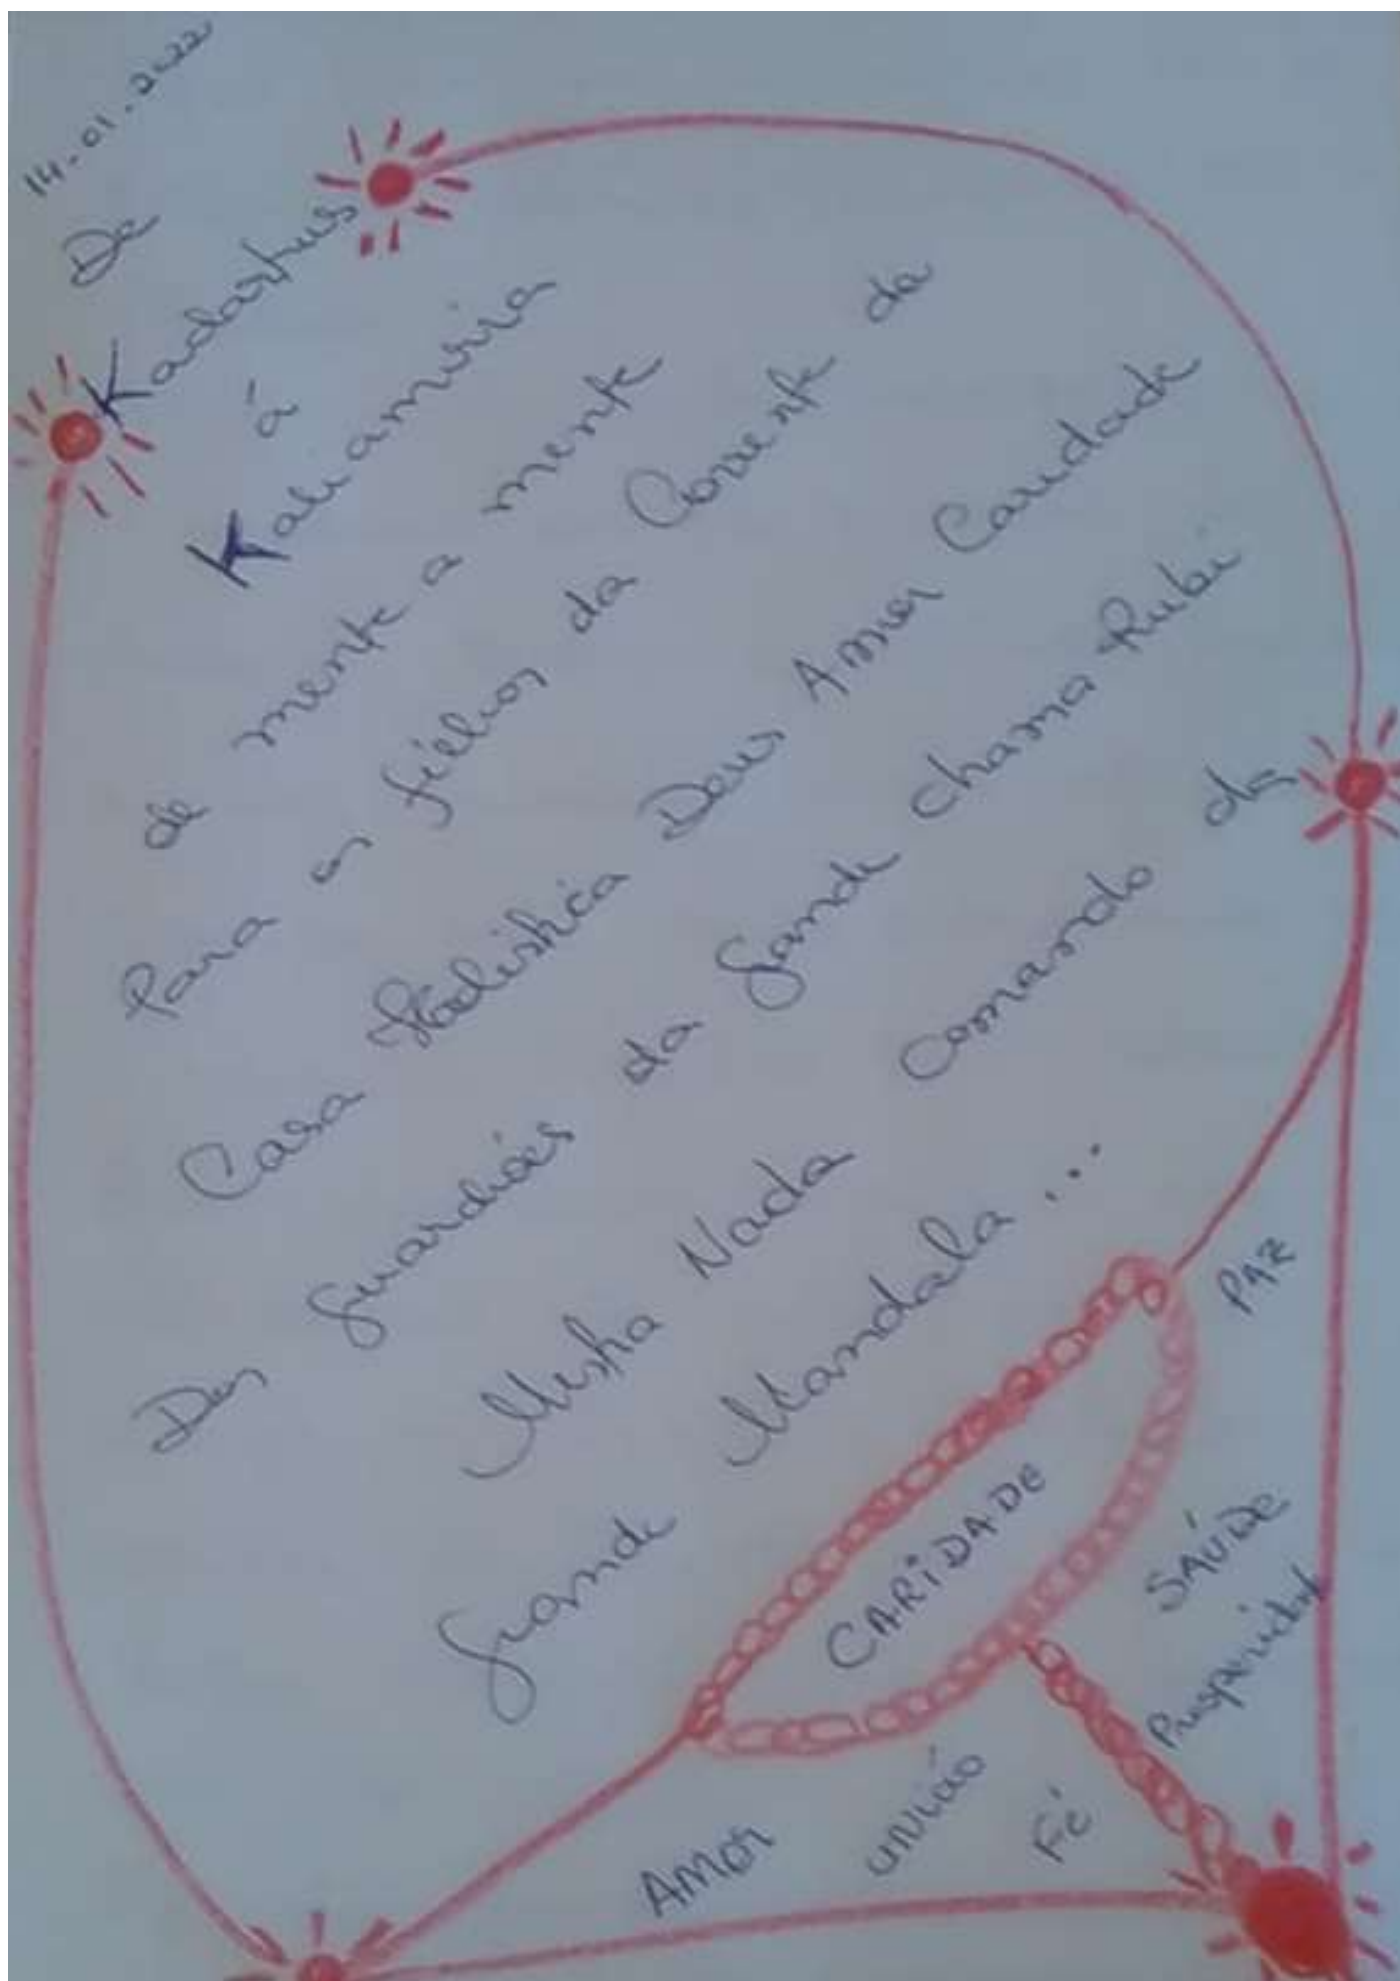 14.01.2022
De
Kadarthus
á
Kaliamira
de mente a mente
Para os filhos da Corrente da
Casa Holistica Deus Amor Caridade
Dos guardiões da grande chama Rubi
Mestra Nada comando da
grande Mandala...
PAZ
CARIDADE
SAÚDE
Prosperidade
AMOR
UNIÃO
FÉ